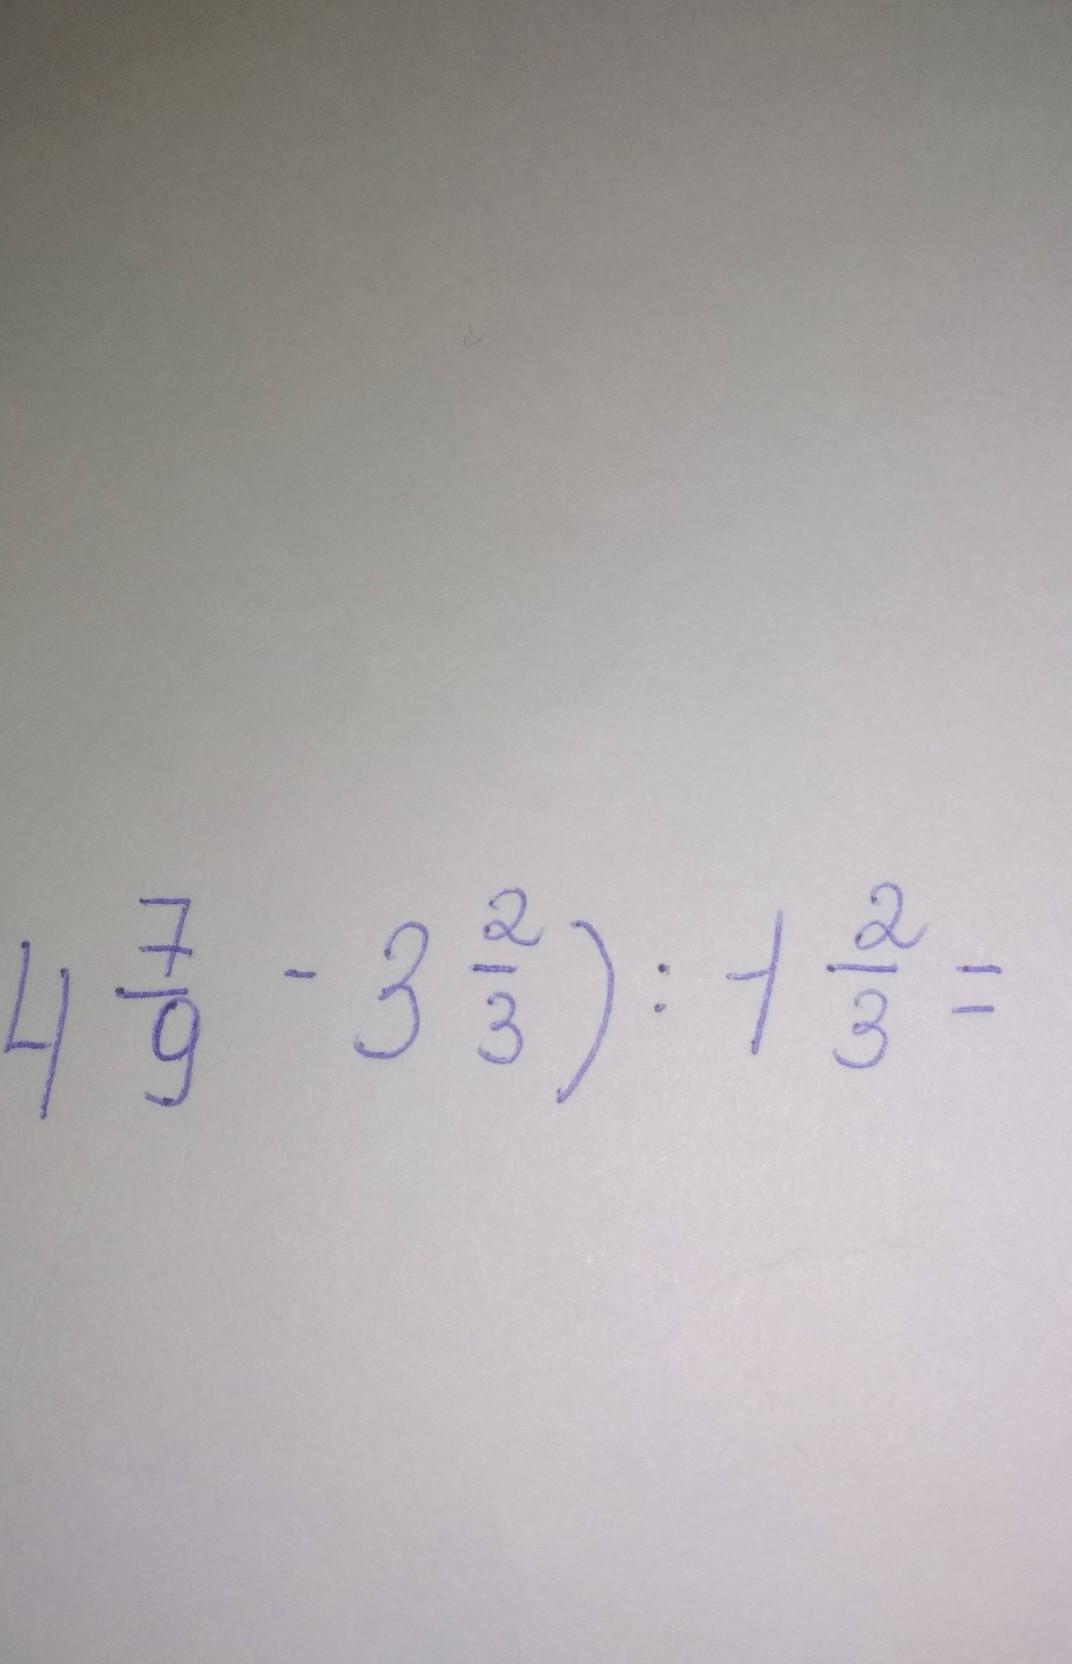 4 7/9 - 3 2/3) : 1 2/3 =